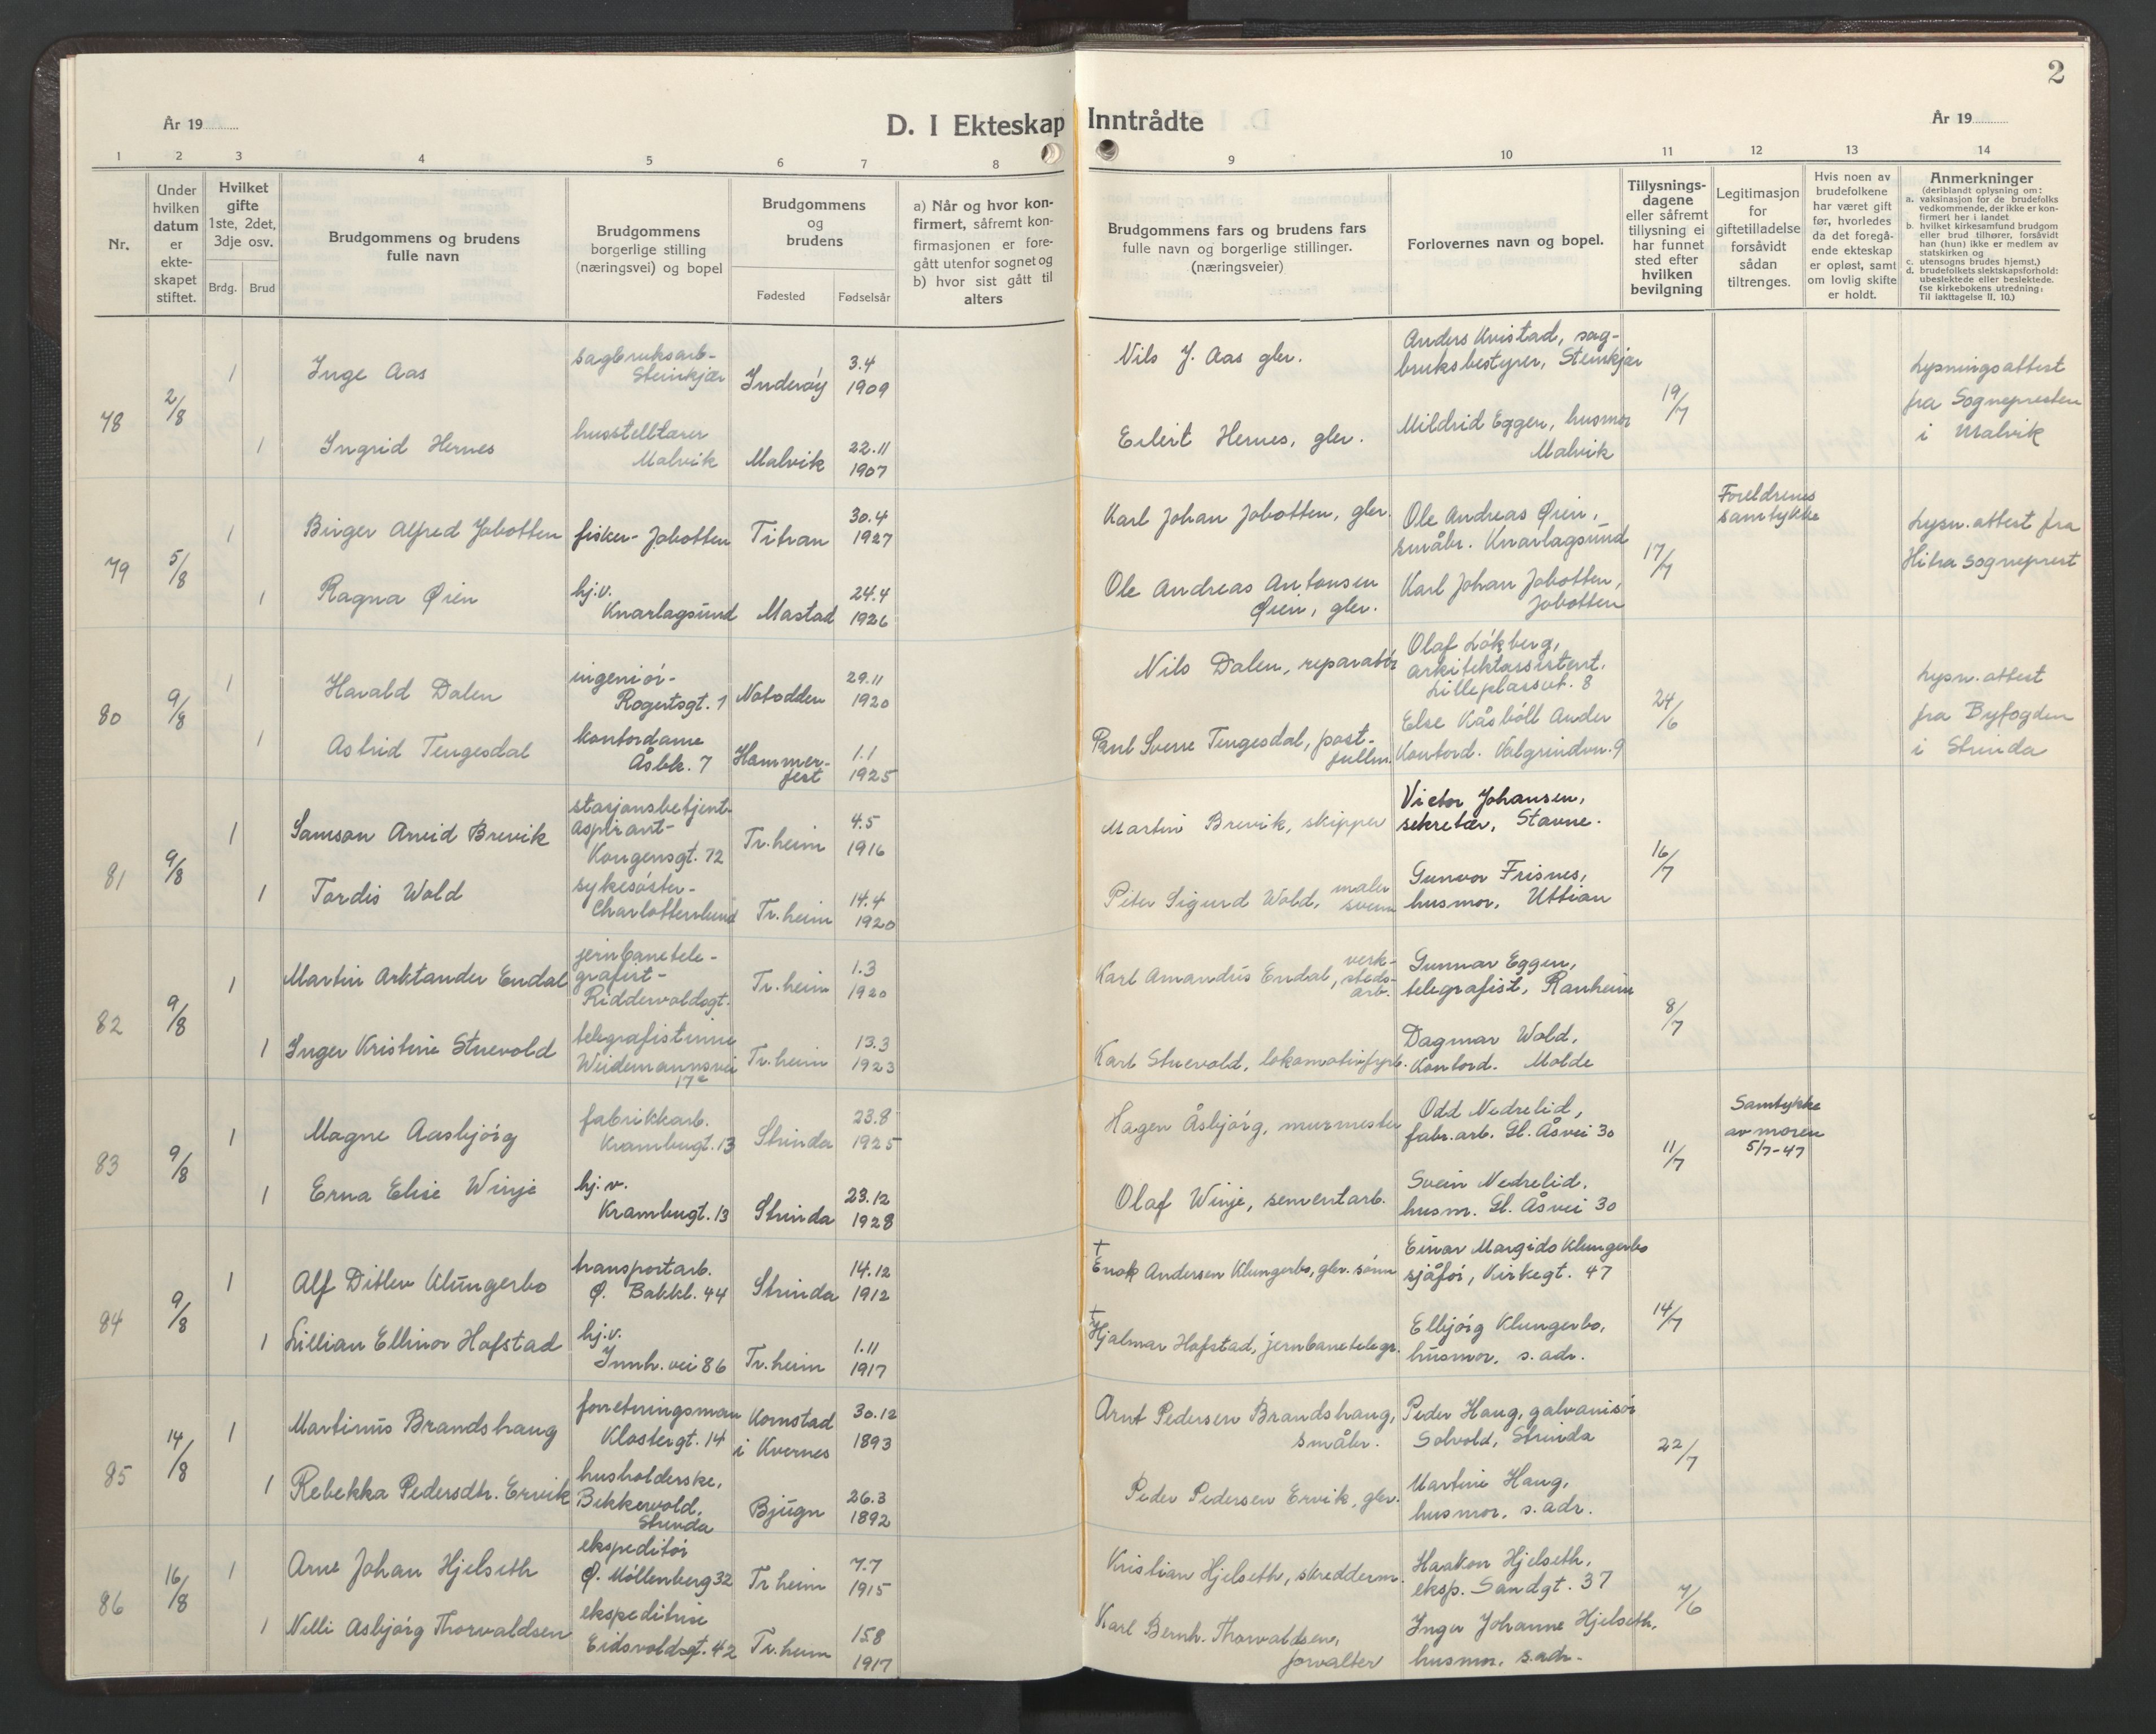 2
År 19
D. I Ekteskap Inntrådte
År 19
1 2 3 4 5 6 7 8 9 10 11 12 13 14
Nr.
Under
hvilken
datum
er
ekte-
skapet
stiftet.
Hvilket
gifte
1ste, 2det,
3dje osv.
Brdg. Brud
Brudgommens og brudens
fulle navn
Brudgommens
borgerlige stilling
(næringsvei) og bopel
Brudgommens
og
brudens
Fødested Fødselsår
a) Når og hvor kon-
firmert, såfremt kon-
firmasjonen er fore-
gått utenfor sognet og
b) hvor sist gått til
alters
Brudgommens fars og brudens fars
fulle navn og borgerlige stillinger.
(næringsveier)
Forlovernes navn og bopel.
Tillysnings-
dagene
eller såfremt
tillysning ei
har funnet
sted efter
hvilken
bevilgning
Legitimasjon
for
giftetilladelse
forsåvidt
sådan
tiltrenges.
Hvis noen av
brudefolkene
har været gift
før, hvorledes
da det foregå-
ende ekteskap
er opløst, samt
om lovlig skifte
er holdt.
Anmerkninger
(deriblandt oplysning om:
a. vaksinasjon for de brudefolks
vedkommende, der ikke er kon-
firmert her i landet
b. hvilket kirkesamfund brudgom
eller brud tilhører, forsåvidt
han (hun) ikke er medlem av
statskirken og
c. utensogns brudes hjemst.)
d. brudefolkets slektskapsforhold:
ubeslektede eller beslektede.
(se kirkebokens utredning:
Til iakttagelse II. 10.)
78 2/8
1 Inge Aas sagbruksarb-
Steinkjær Inderøy 3.4
1909 Nils J. Aas gbr. Anders Kvistad, sag-
bruksbestyrer, Steinkjær
19/7
Lysningsattest
fra Sognepresten
i Malvik
1 Ingrid Hernes husstellærer
Malvik Malvik 22.11
1907 Eilert Hernes, gbr. Mildrid Eggen, husmor
Malvik
79 5/8
1 Birger Alfred Jøbotten fisker - Jøbotten Titran 30.4
1927 Karl Johan Jøbotten, gbr. Ole Andreas Øien,
småbr. Knarlagsund
17/7
Foreldrenes
samtykke
Lysn.attest fra
Hitra sogneprest
1 Ragna Øien hj.v.
Knarlagsund Mastad 24.4
1926 Ole Andreas Antonsen
Øien, gbr. Karl Johan Jøbotten,
Jøbotten
80 9/8
1 Harald Dalen ingeniør-
Rogertsgt. 1 Notodden 29.11
1920 Nils Dalen, reparatør Olaf Løkberg,
arkitektassistent.
Lilleplassvt. 8
24/6
Lysn.attest
fra Byfogden
i Strinda
1 Astrid Tengesdal kontordame
Åsbk. 7 Hammer-
fest 1.1
1925 Paul Sverre Tengesdal, post-
fullm. Else Kåsbøll Ander
Kontord. Valgrindvn. 9
81 9/8
1 Samson Arvid Brevik stasjonsbetjent-
aspirant-
Kongensgt. 72 Tr.heim 4.5
1916 Martin Brevik, skipper Victor Johansen,
sekretær, Stavne.
16/7
1 Tordis Wold sykesøster-
Charlottenlund Tr.heim 14.4
1920 Peter Sigurd Wold, maler
svenn Gunvor Frisnes,
husmor, Uttian
82 9/8
1 Martin Arktander Endal jernbanetele-
grafist-
Riddervoldsgt. Tr.heim 1.3
1920 Karl Amandus Endal, verk-
steds-
arb. Gunnar Eggen,
telegrafist, Ranheim
8/7
1 Inger Kristine Stuevold telegrafistinne
Weidemannsvei
17c Tr.heim 13.3
1923 Karl Stuevold, lokomotivfyrb. Dagmar Wold,
Kontord. Molde
83 9/8
1 Magne Aasbjørg fabrikkarb.
Krambugt. 13 Strinda 23.8
1925 Hagen Åsbjørg, murmester Odd Nedrelid,
fabr.arb. Gl. Åsvei 30
11/7
Samtykke
av moren
5/7-47
1 Erna Elise Winje hj.v.
Krambugt. 13 Strinda 23.12
1928 Olaf Winje, sementarb. Svein Nedrelid,
husm. Gl. Åsvei 30
84 9/8
1 Alf Ditlev Klungerbo transportarb.
Ø. Bakkl. 44 Strinda 14.12
1912 † Enok Andersen Klungerbo, gbr. sønn Einar Margido Klungerbo
sjåfør, Kirkegt. 47
14/7
1 Lillian Ellinor Hofstad hj.v.
Innh.vei 86 Tr.heim 1.11
1917 † Hjalmar Hofstad, jernbanetelegr. Elbjørg Klungerbo,
husmor, s.adr.
85 14/8
1 Martinus Brandshaug forretningsmann
Klostergt. 14 Kornstad
i Kvernes 30.12
1893 Arnt Pedersen Brandshaug,
småbr. Peder Haug, galvanisør
Solvold, Strinda
22/7
1 Rebekka Pedersdtr. Ervik husholderske,
Bekkevold,
Strinda Bjugn 26.3
1892 Peder Pedersen Ervik, gbr. Martine Haug,
husmor, s.adr.
86 16/8
1 Arne Johan Hjelseth ekspeditør
Ø. Møllenberg 32 Tr heim 7.7
1915 Kristian Hjelseth, skredderm. Haakon Hjelseth,
eksp. Sandgt. 37
7/6
1 Nelli Asbjørg Thorvaldsen ekspeditrise
Eidsvoldsgt. 42 Tr.heim 15.8
1917 Karl Bernh. Thorvaldsen,
forvalter Inger Johanne Hjelseth,
husmor, s.adr.